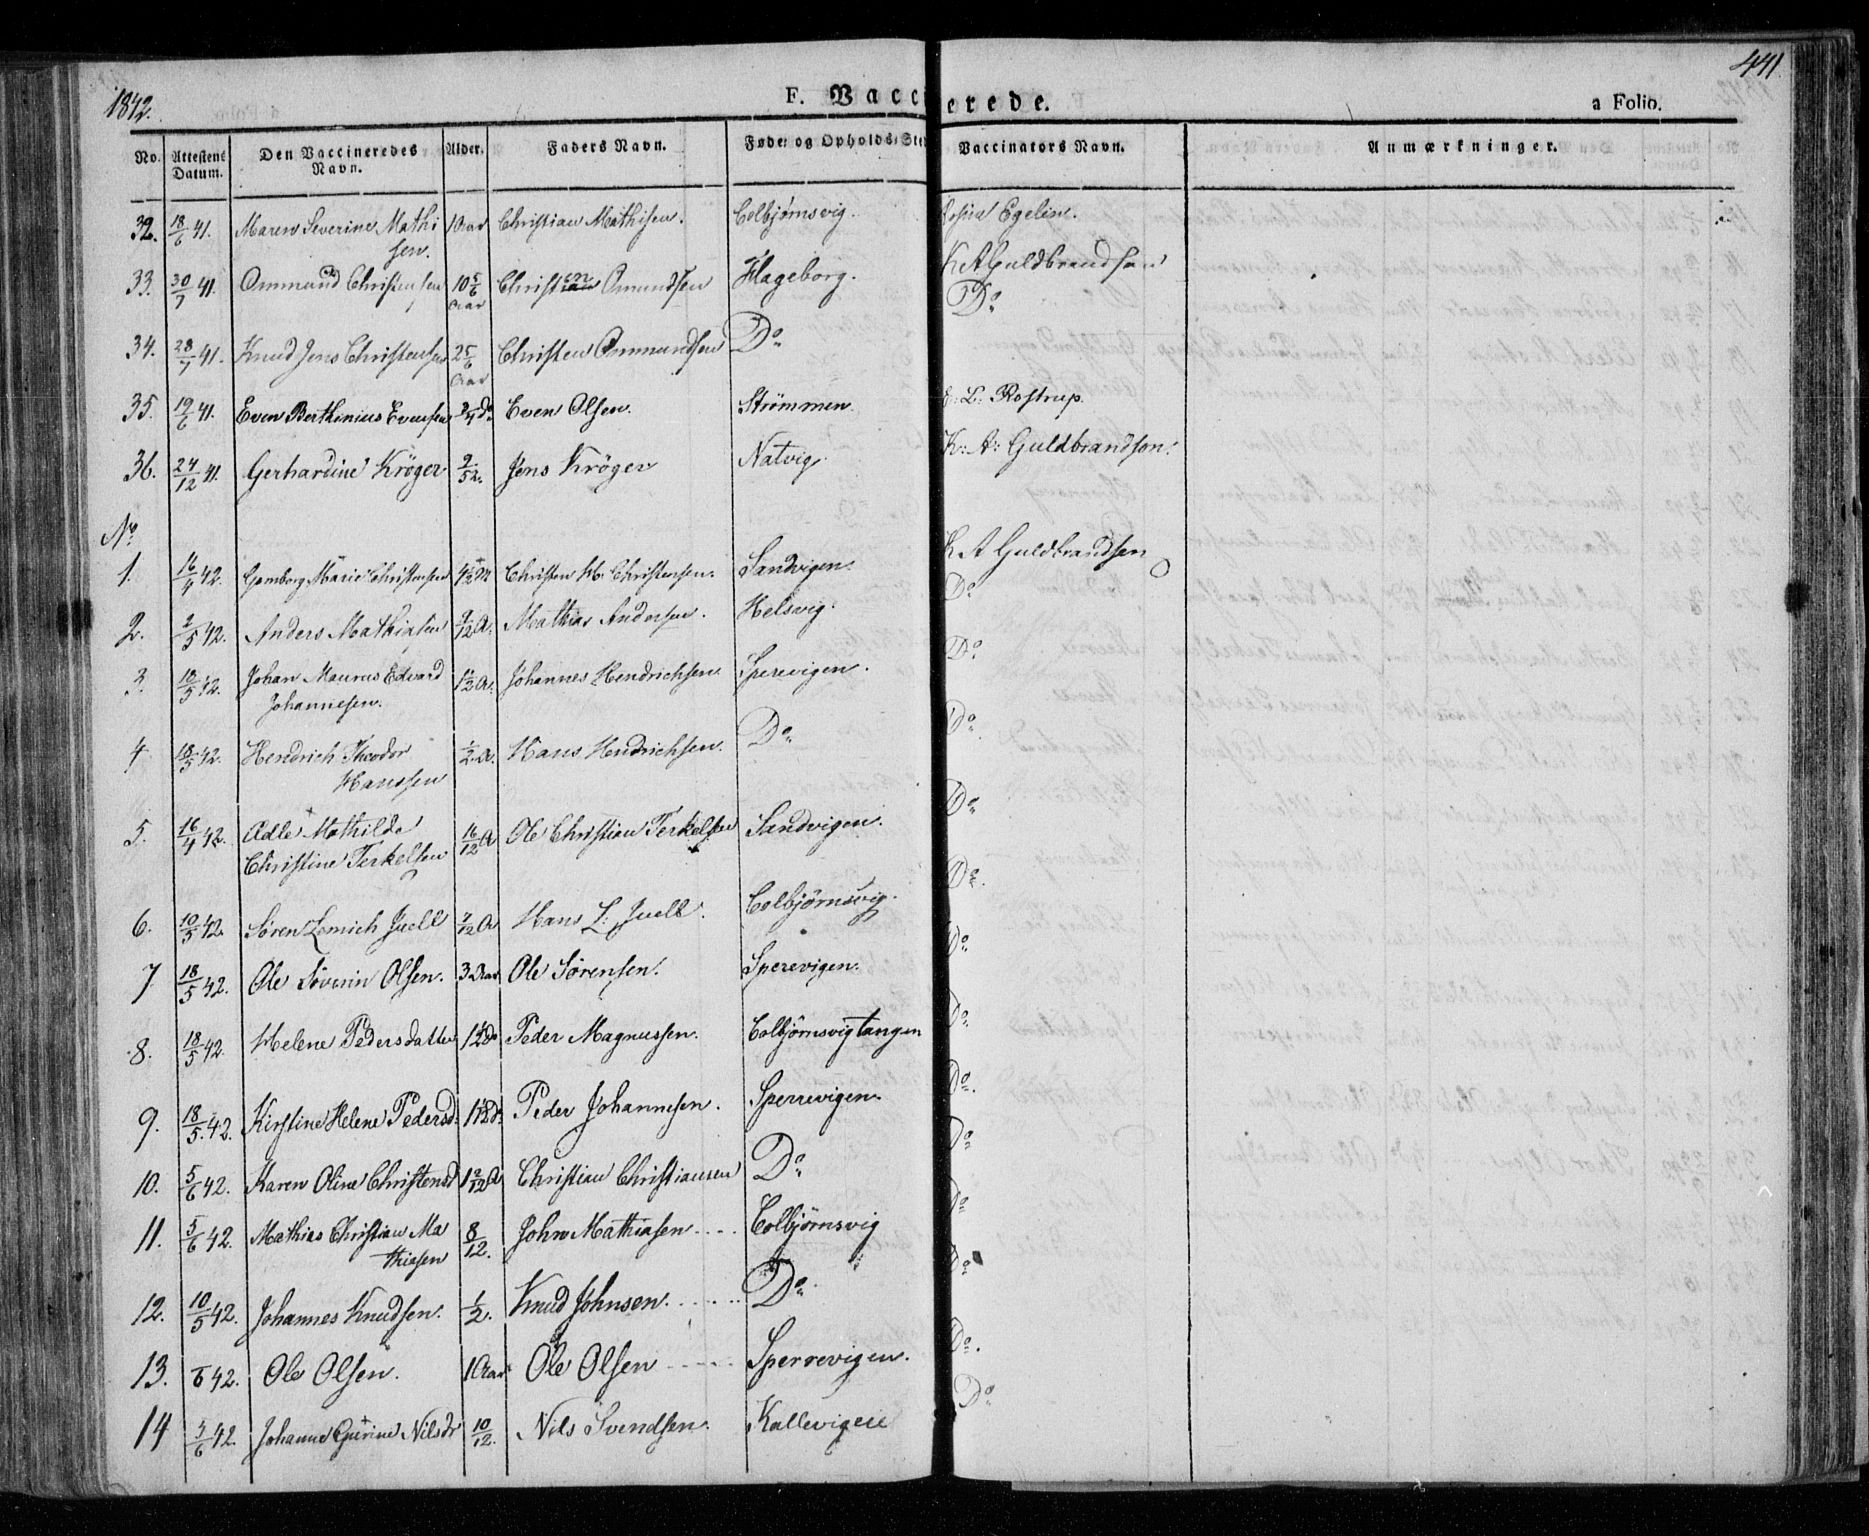 1842.
F. Vaccinerede.
a Folio.
441
No. Attestens Datum. Den Vaccineredes Navn. Alder. Faders Navn. Føde- og Opholds-Sted Vaccinators Navn. Anmærkninger.
32. 18/6 41. Maren Severine Mathi 1 Aar Christian Mathisen. Colbjørnsvig. Egelin.
sen.
33. 30/7 41. Ommund Christensen 10 5/6 Aar Christen Omundsen Hageborg. K A Guldbrandsen
Do
34. 28/7 41. Knud Jens Christensen 2 5/6 Aar Christen Ommundsen Do
35. 19/6 41. Even Berthinius Evensen 3/4 do Even Olsen. Strømmen. L: Rostrup.
36. 24/12 41. Gerhardine Krøger 9/52. Jens Krøger Natvig. K: A: Guldbrandson.
No
1. 16/4 42. Gomborg Marie Christensen Christen H. Christensen. Sandvigen. K A Guldbrandsen
2. 2/5 42. Anders Mathiasen 9/12 A. Mathias Andersen. Helsvig. Do
3. 18/5 42. Johan Maurus Edvard 1 1/2 A. Johannes Hendrichsen Sperevigen. Do
Johannesen.
4. 18/5 42. Hendrich Theodor 1/2 A. Hans Hendrichsen. Do Do
Hanssen
5. 16/4 42. Adle Mathilde 16/12 A Ole Christian Terkelsen Sandvigen. Do
Christine Terkelsen
6. 10/5 42. Søren Lemich Juell 7/12 A Hans L: Juell. Colbjørnsvig. Do.
7. 18/5 42. Ole Søverin Olsen. 3 Aar Ole Sørensen. Sperevigen. Do
8. 18/5 42. Helene Pedersdatter 1 1/2 do Peder Magnussen. Colbjørnsvigtangen Do
9. 18/5 42. Kirstine Helene Pedersd. 1 1/2 do Peder Johannesen. Sperrevigen. Do.
10. 5/6 42. Karen Oline Christensd 1 2/12 A Christian Christiansen Do Do
11. 5/6 42. Mathias Christian Ma 8/12. John Mathiasen Colbjørnsvig Do
thiasen
12. 10/5 42. Johannes Knudsen. 1/2. Knud Johnsen. Do. Do
13. 6 42. Ole Olsen. 1 Aar Ole Olsen Sperrevigen. Do.
14 5/6 42. Johanne Gurine Nilsdr 10/12. Nils Svendsen. Kallevigen Do